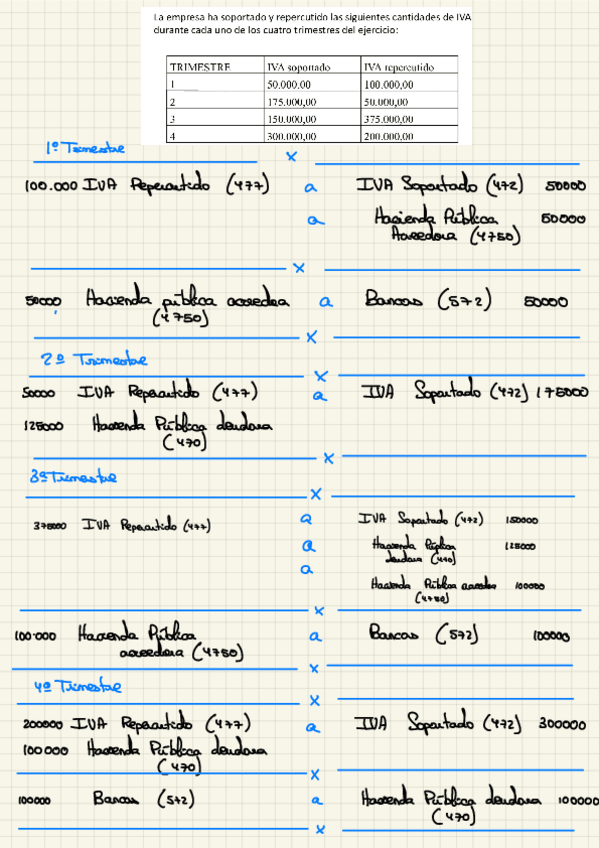 La empresa ha soportado y repercutido las siguientes cantidades de IVA
durante cada uno de los cuatro trimestres del ejercicio:
TRIMESTRE IVA soportado IVA repercutido
1 50.000,00 100.000,00
2 175.000,00 50.000,00
3 150.000,00 375.000,00
4 300.000,00 200.000,00
1º Trimestre
x
100.000 IVA Repercutido (477) a IVA Soportado (472) 50000
a Hacienda Pública 50000
Acreedora (4750)
x
50000 Hacienda pública acreedora a Bancos (572) 50000
(4750)
x
2º Trimestre
x
50000 IVA Repercutido (477) a IVA Soportado (472) 175000
125000 Hacienda Pública deudora
(470)
x
3º Trimestre
x
375000 IVA Repercutido (477) a IVA Soportado (472) 150000
a Hacienda Pública 125000
deudora (470)
a
Hacienda Pública acreedora 100000
(4750)
x
100.000 Hacienda Pública a Bancos (572) 100000
acreedora (4750)
x
4º Trimestre
x
200000 IVA Repercutido (477) a IVA Soportado (472) 300000
100000 Hacienda Pública deudora
(470)
x
100000 Bancos (572) a Hacienda Pública deudora 100000
(470)
x